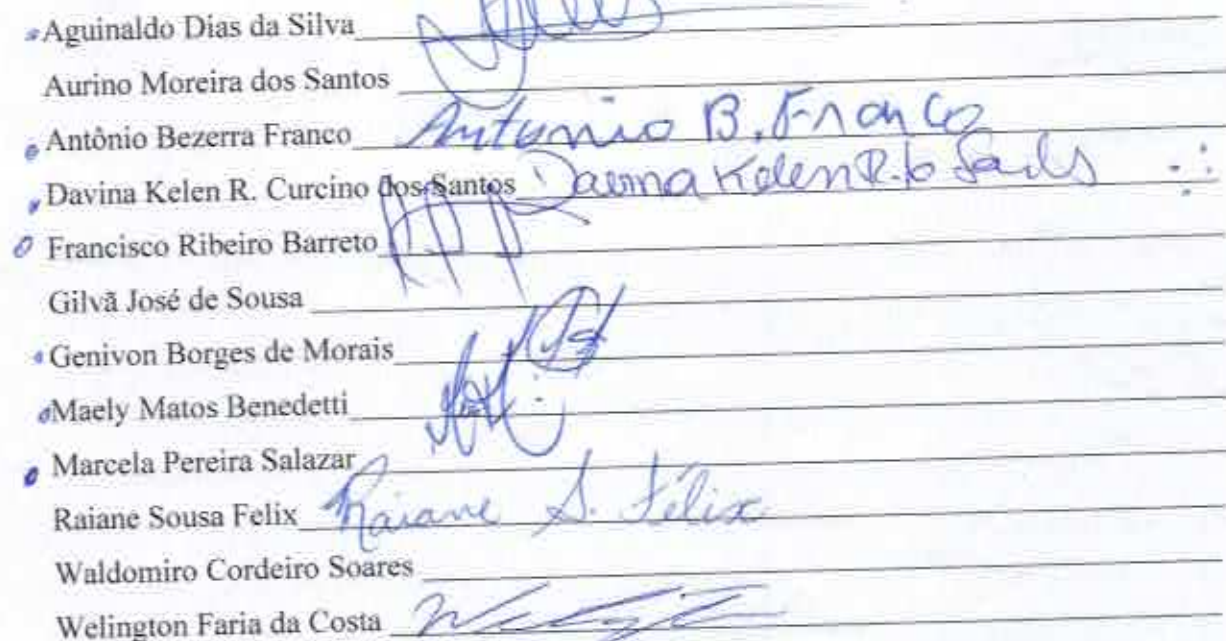 Aguinaldo Dias da Silva
Aurino Moreira dos Santos
Antônio Bezerra Franco Antonio B. Franco
Davina Kelen R. Curcino dos Santos Davina Kelen R.
Francisco Ribeiro Barreto
Gilvã José de Sousa
Genivon Borges de Morais
Maely Matos Benedetti
Marcela Pereira Salazar
Raiane Sousa Felix Raiane S. Félix
Waldomiro Cordeiro Soares
Welington Faria da Costa